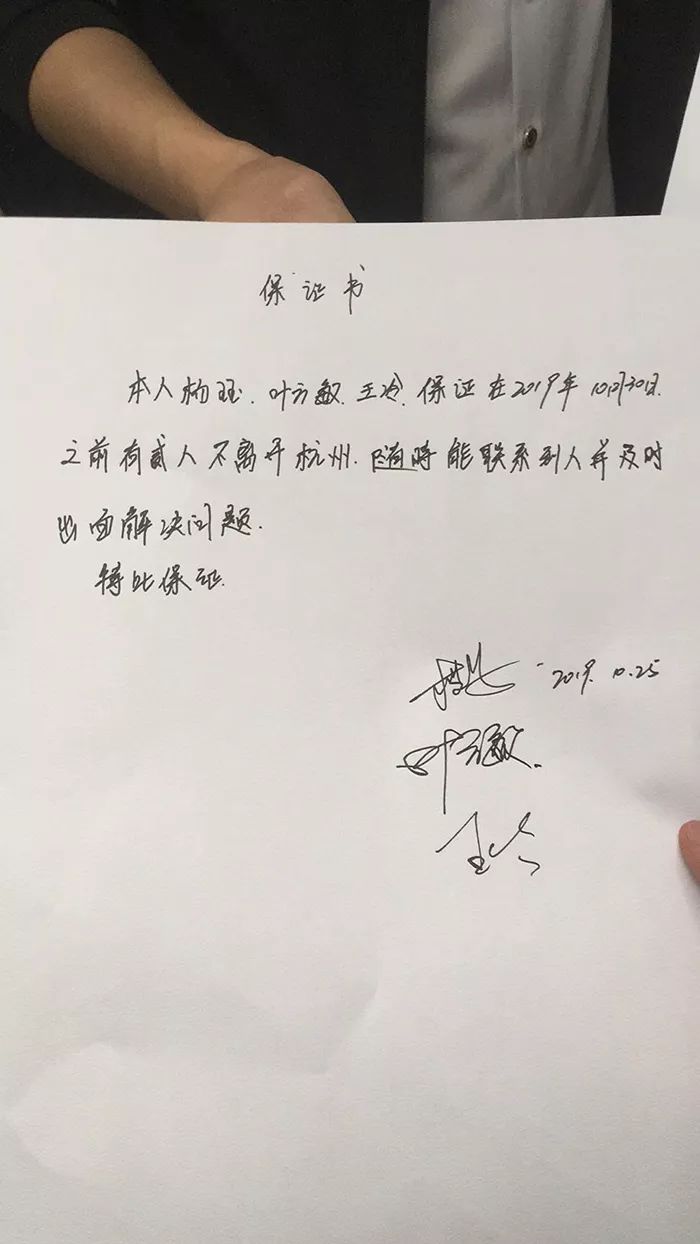 保证书
本人杨珏、叶方敏、王冷、保证在2019年10月30日
之前有贰人不离开杭州.随时能联系到人并及时
出面解决问题.
特此保证.
2019.10.25
叶方敏.
王冷